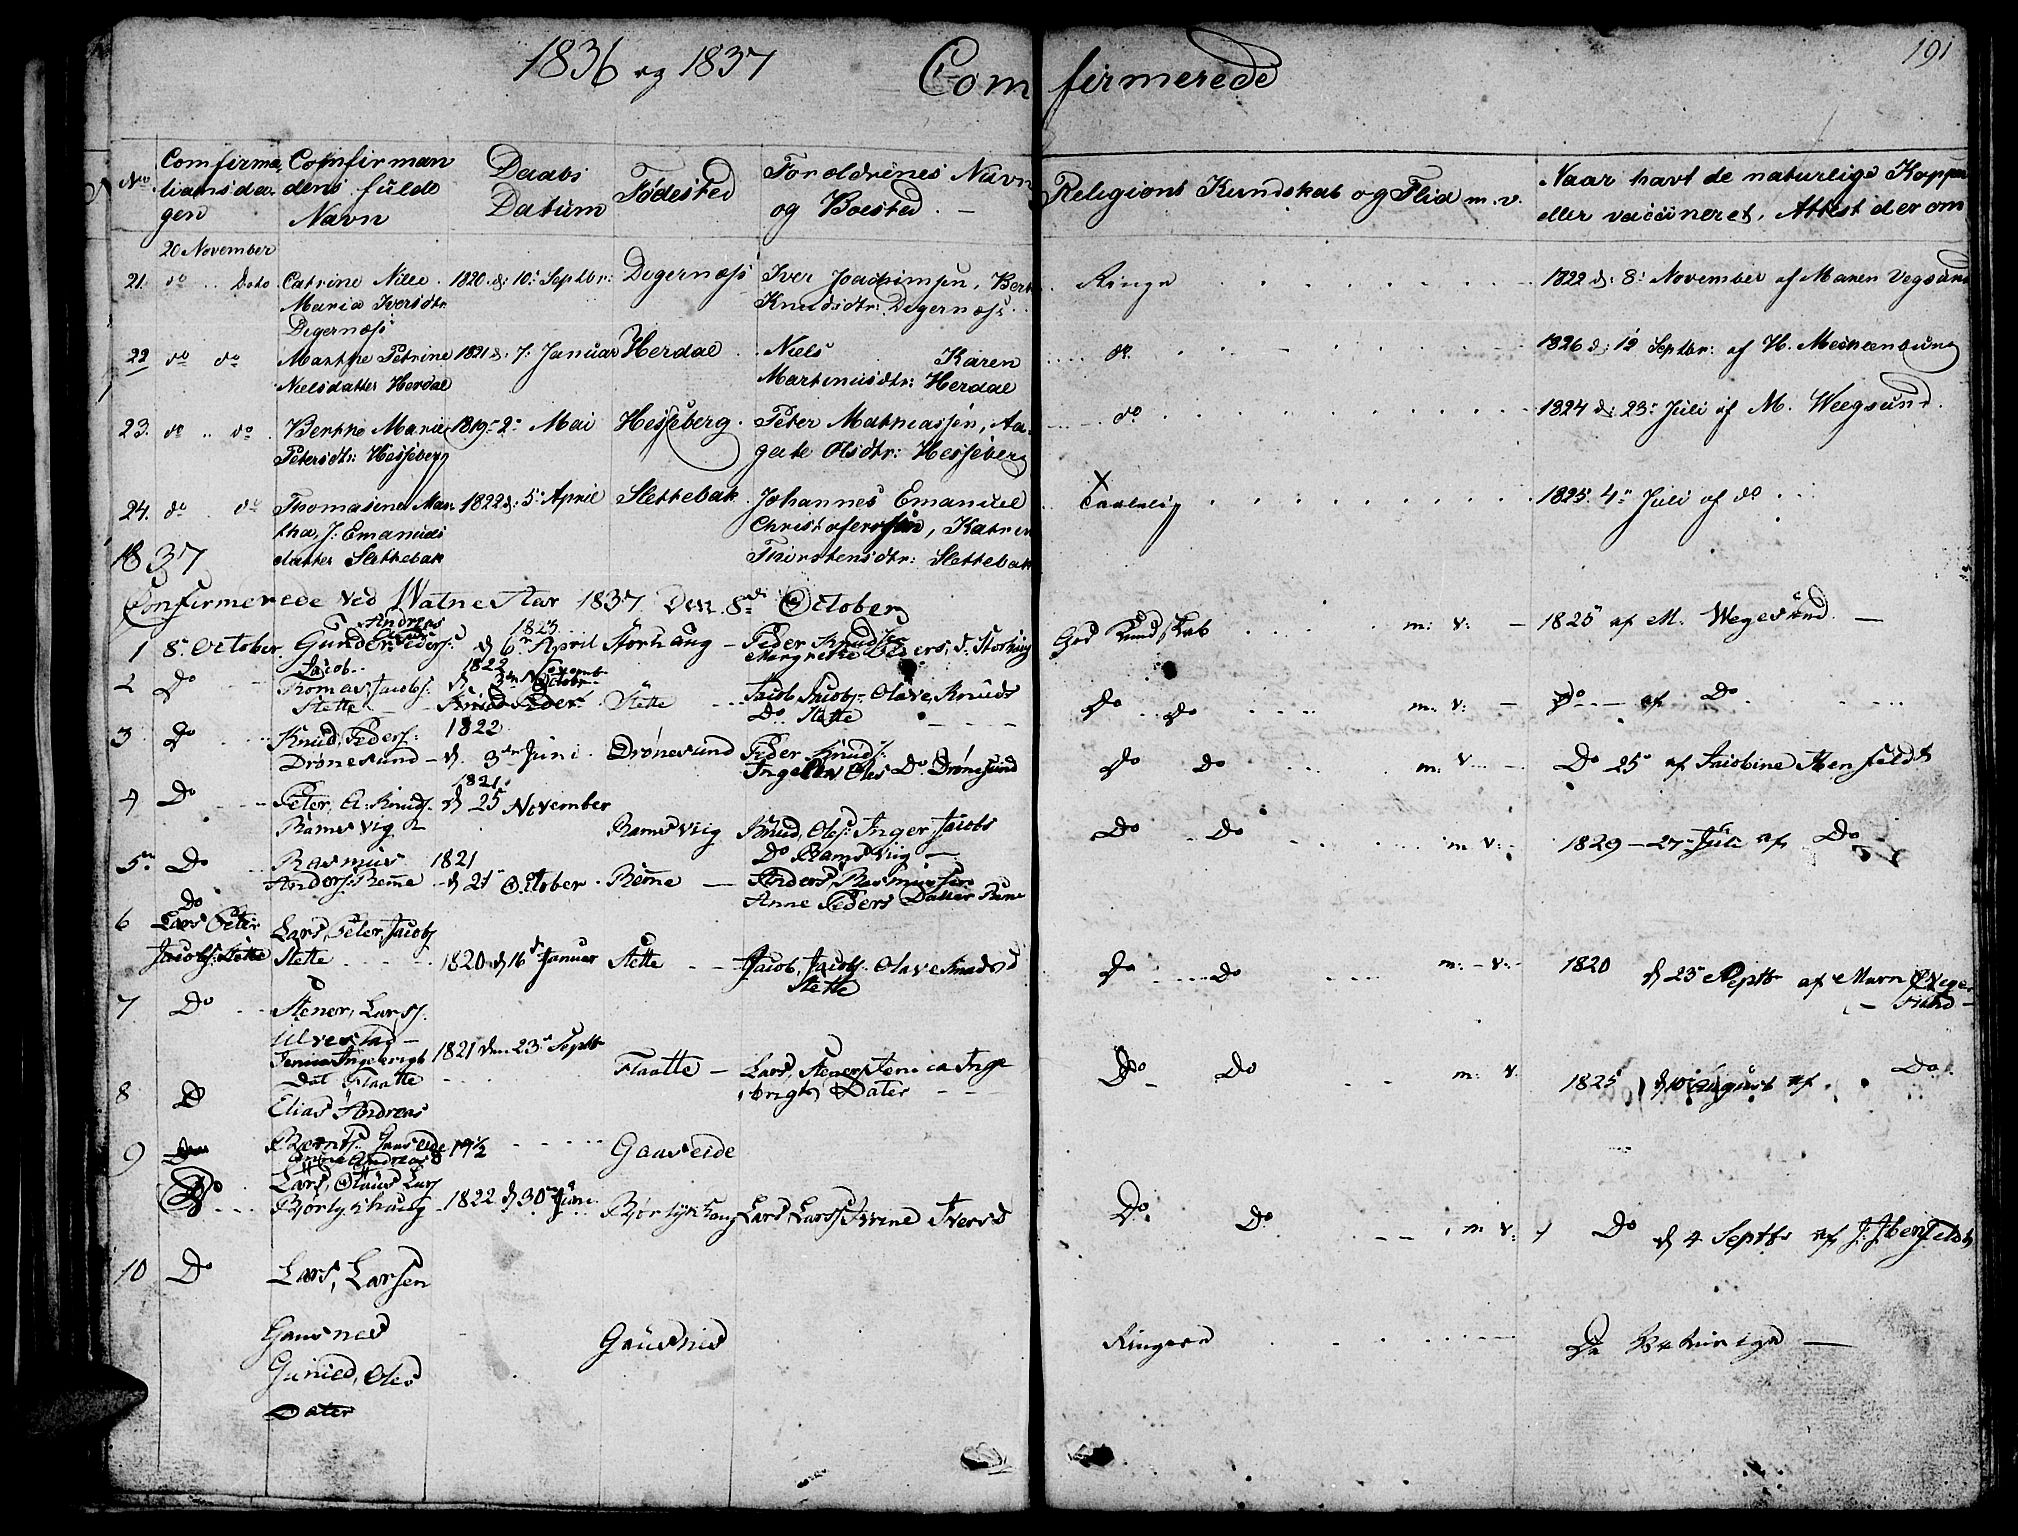 1836 og 1837
Comfirmerede
191
No
Comfirmatiansdagen
Comfirmandens fulde Navn
Daabs Datum
Fødested
Foroldrenes Navn og Boested. —
Religions Kundskab og Flid m. v.
Naar havt de naturlige Kopper eller vaccineret, Attest derom
20 November
21. do .. Dito Catrine Nille Maria Iversdtr Degernæss 1820. d. 10. Septbr: Degernæss Iver Joachimsen, Berte Knudsdtr: Degernæss. Ringe 1822 d: 8: November af Maren Vegsund
22 do do Marthe Petrine Nielsdatter Herdal 1821 d. 7. Januar Herdal Niels Karen Martinusdtr: Herdal do 1826 d: 12 Septbr: af H.
23. do .. do. Berthe Marie Petersdtr: Hesseberg 1819 2 Mai Hesseberg. Peter Mathiassen, Aagate Olsdtr: Hesseberg do 1824 d: 23 Juli af M. Weegsund.
24. do . do Thomasine Martha, J: Emanuels datter Slettebak 1822 d: 5 April Slettebak Johannes Emanuel Christofersen, Katrin Thorstensdtr: Slettebak X Taalelig 1825. 4 Juli af do
1837
Confirmerede ved Watne Star 1837 Den 8de October
1 8 October Gunder Andreas Peders: 1823 d 6 April Storhaug — Peder Knuds: Margrethe Peders, d. Storhaug God Kundskab m: v: — 1825 af M. Wegesund. —
2 Do Jacob Tomas, Jacobs: Stette 1822 d. 3 Novemb Stette Jacob Jacobs: Olave Knuds Do Stette Do Do m: v: — Do af Do
3 Do Knud, Peders: Drønesund 1822 d. 3 Juni. Drønesund Peder Knuds: Oles Do Drønesund Do Do m: v Do 25 af Jacobine
4 Do Peter, A: Knuds. Ramsvig 1821 d 25 November Ramsviig Knud, Oles: Inger Jacobs Do Ramsviig — Do Do m: v: 1829 — 27 Juli af Do
5 Do Rasmus Anders: Reme 1821 d 21 October Reme Anders, Rasmus Anne Peders Datter Reme
6 Do Lars Peter Jacobs: Stette Lars, Peter, Jacobs Stette 1820 d 16 Januar Stette Jacob, Jacobs: Olave Knuds d Stette Do Do m: v: 1820 d 23 Septb af Marn Wegesund
7 Do Stener, Lars: Ulvestad Ingebrigt Dat Flaatte 1821 den 23 Septb Flaatte — Lars, Stener, Jenica Ingebrigts Dater Do Do m: v 1825 d 10 August af Do
8 D Elias Andreas Gaaseide 19½ Gaaseide
9 Do Lars, Olaus Lars Børlykhaug 1822 d 30 Juni Børlykhaug Lars, Larss: Ivrine Ivers d Do. Do m v: Do d 4 Septb af J: Ibenfeldt
10 Do Lars, Larsen
Gausnes Gausnes Ringere Do
Gunied, Oles
Dater